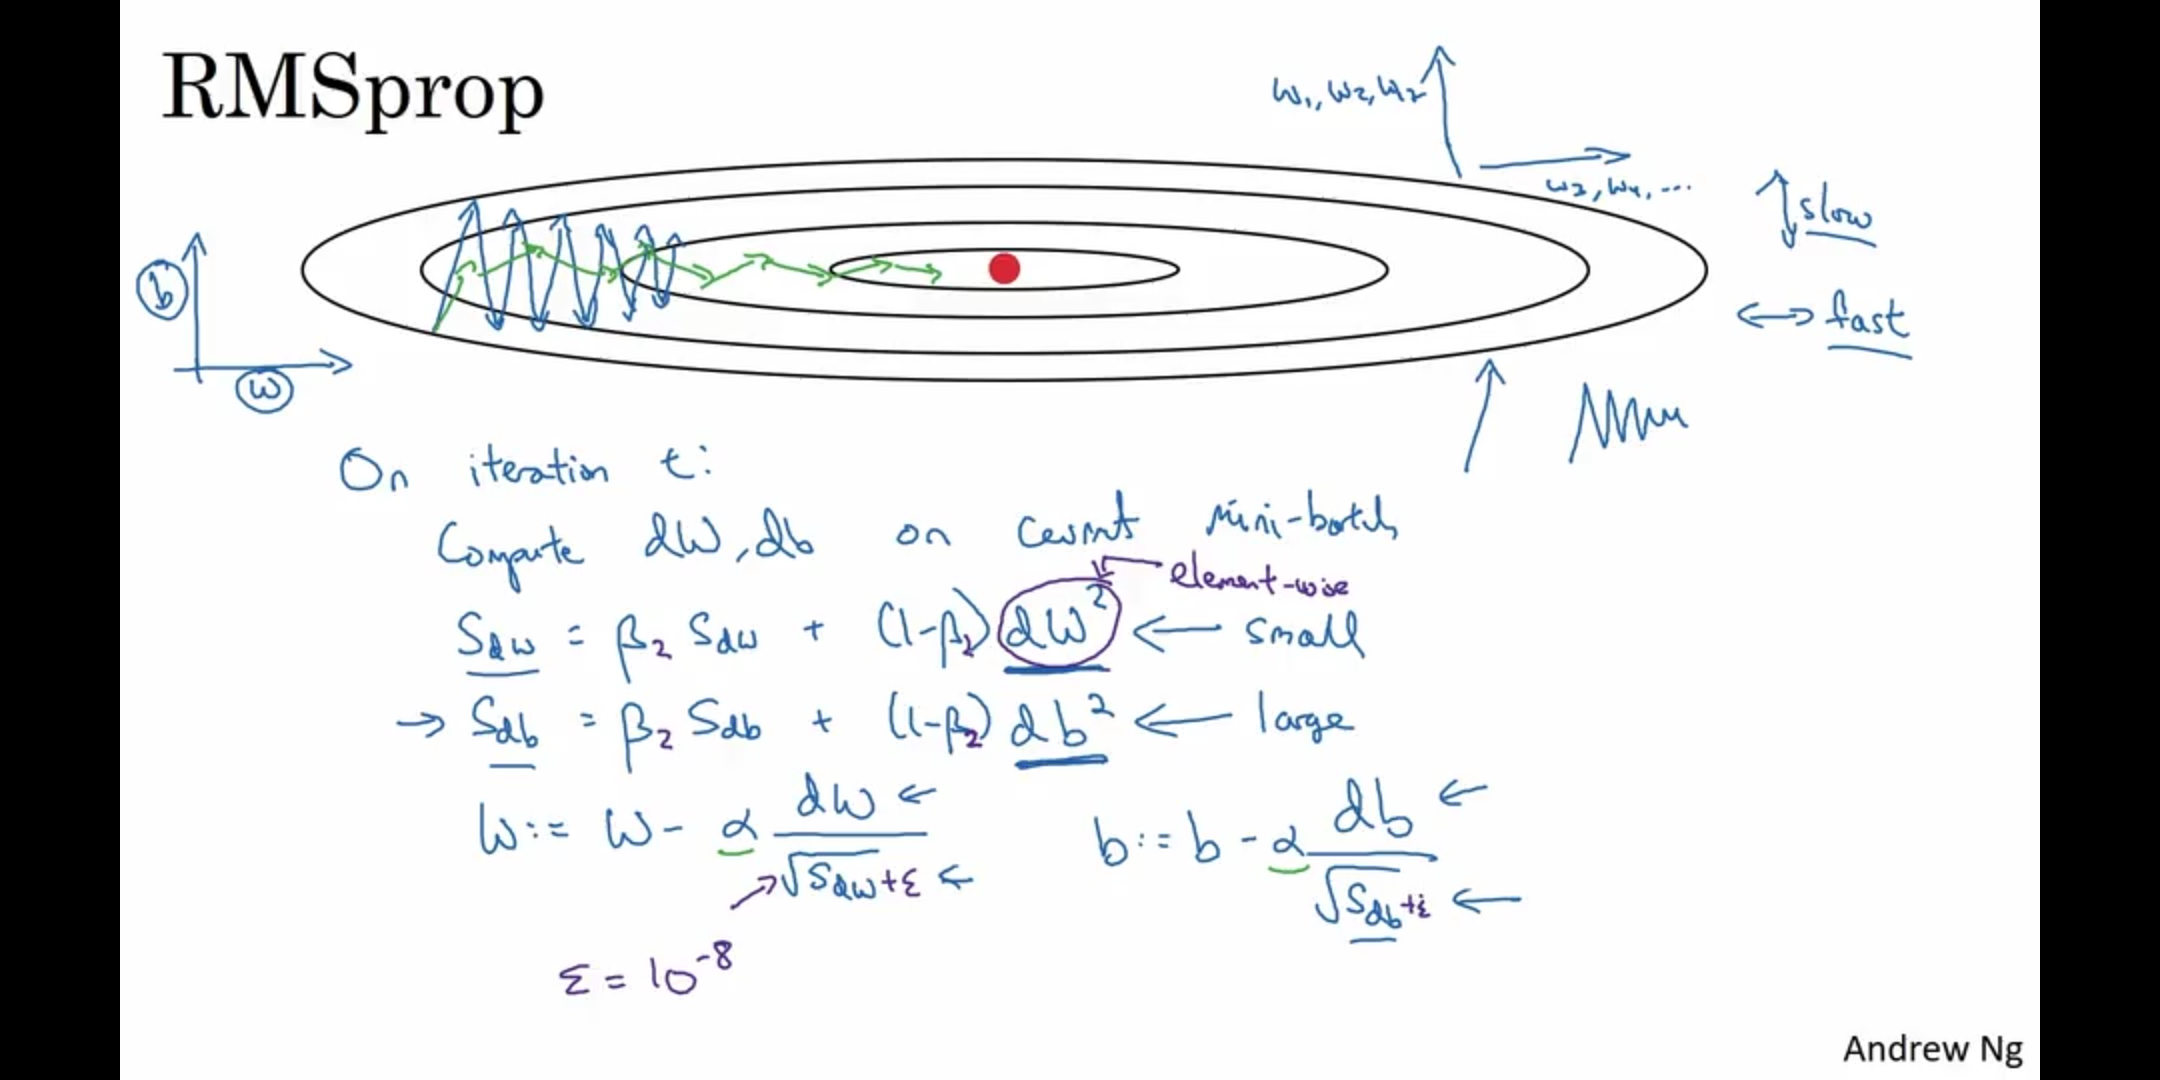 RMSprop
w₁, w₂, w₂
w₃, w₄, ...
slow
b
fast
w
On iteration t:
Compute dW, db on current mini-batch
element-wise
Sdw = β₂ Sdw + (1-β₂) dW² ← small
→ Sdb = β₂ Sdb + (1-β₂) db² ← large
W := W - α dW / √Sdw + ε ← b := b - α db / √Sdb + ε ←
ε = 10⁻⁸
Andrew Ng